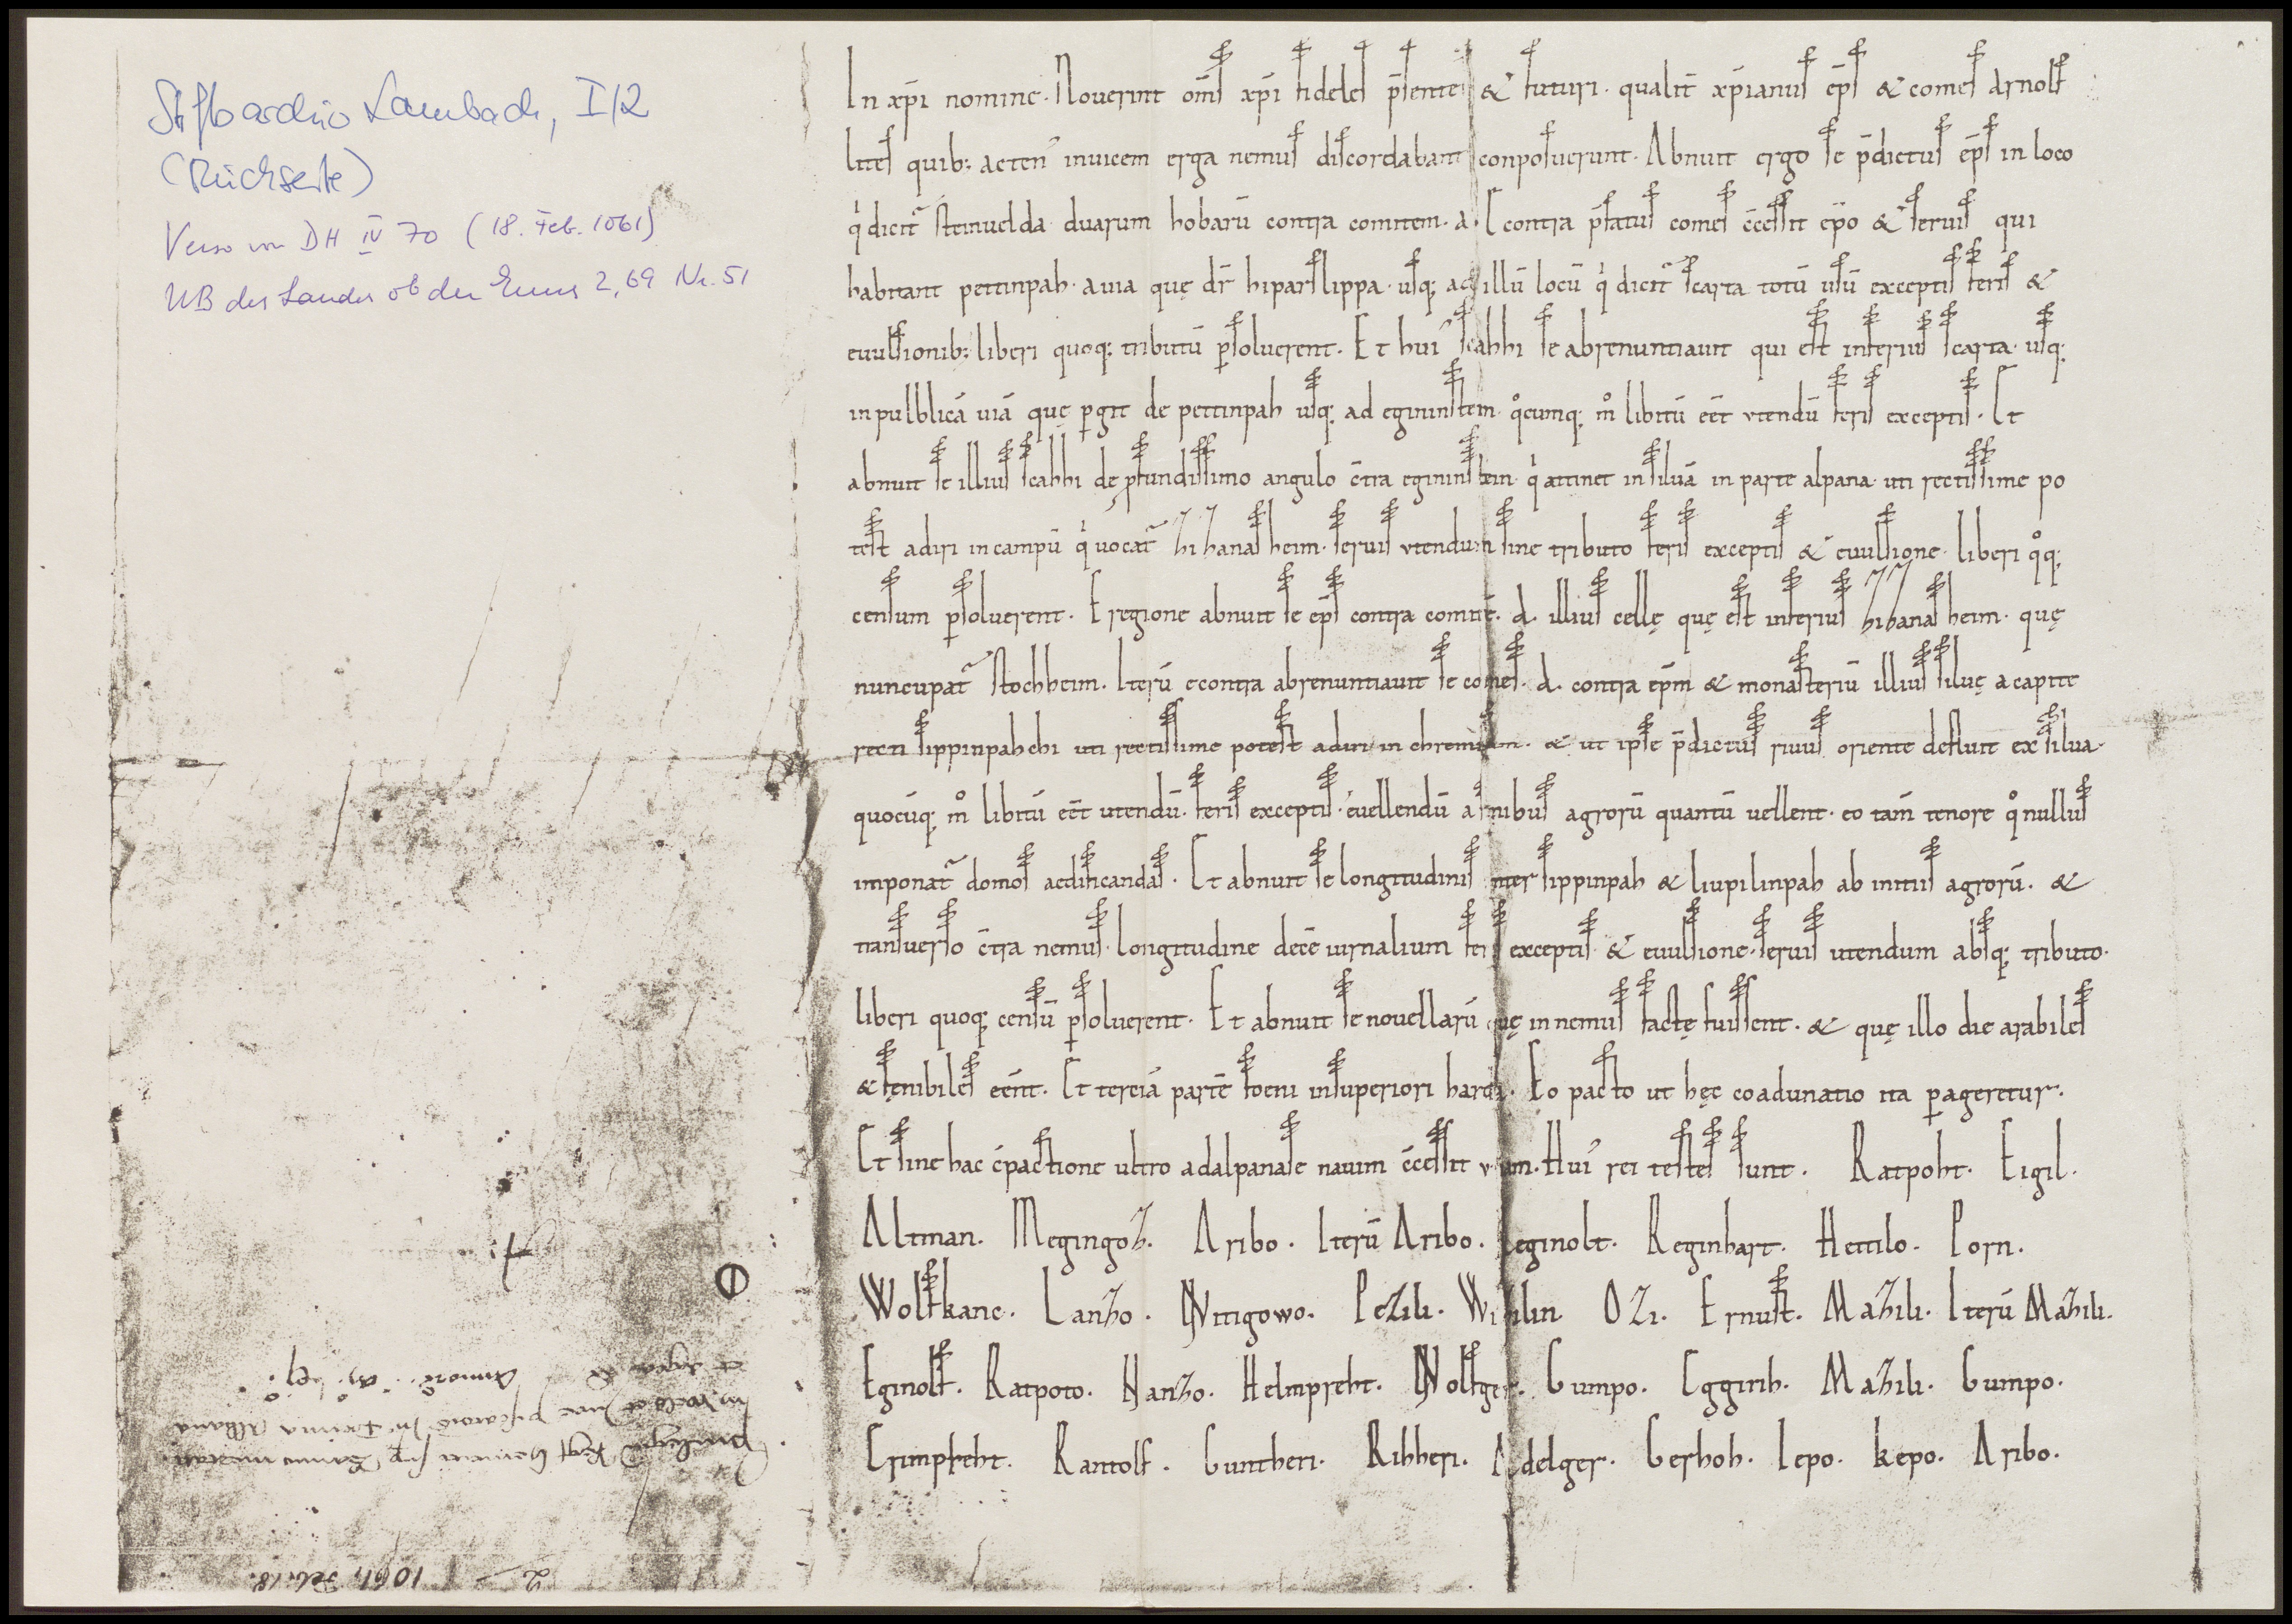 Stiftsarchiv Lambach, I/2
(Rückseite)
Verso von DH IV 70 (18. Feb. 1061)
UB des Landes ob der Enns 2, 69 Nr. 51
In xp̄i nomine. Nouerint om̄s xp̄i fideles p̄sentes & futuri. qualit̄ xp̄ianus ep̄s & comes arnolf
lites quib; acten᾽ inuicem erga nemus discordabant conposuerunt. Abnuit ergo se p̄dictus ep̄s in loco
q̇ dicit᷑ steinuelda duarum hobarū contra comitem. a. E contra p̄fatus comes c̄cessit ep̄o & seruis qui
habitant pettinpah. a uia quę dr̄ hiparslippa. usq; ad illū locū q̇ dicit᷑ scarta totū usū exceptis feris &
euulsionib; liberi quoq; tributū ꝑsoluerent. Et hui᾽ scahhi se abrenuntiauit qui est inferius scarta. usq;
in pulblicā uiā quę ꝑgit de pettinpah usq; ad egininstein. qͦcumq; mͦ libitū eēt vtendū feris exceptis. Et
abnuit se illius scahhi de p̱fundissimo angulo c̄tra egininstein. q̇ attinet in siluā in parte alpana. uti rectissime po
test adiri in campū q̇ uocat᷑ hihanasheim. seruis vtendum sine tributo feris exceptis & euulsione. liberi qͦq;
censum ꝑsoluerent. E regione abnuit se ep̄s contra comitē. a. illius cellę quę est inferius hihanasheim. quę
nuncupat᷑ Stochheim. Iterū econtra abrenuntiauit se comes. a. contra ep̄m & monasteriū illius siluę a capite
recti sippinpahchi uti rectissime potest adiri in chremisam. & ut ipse p̄dictus riuus oriente defluit ex silua.
quocūq; mͦ libitū eēt utendū. feris exceptis. euellendū a finibus agrorū quantū uellent. eo tam̄ tenore qͦ nullus
imponat᷑ domos aedificandas. Et abnuit se longitudinis inter sippinpah & liupilinpah ab initiis agrorū. &
transuerso c̄tra nemus. longitudine decē iurnalium feris exceptis. & euulsione. seruis utendum absq; tributo.
liberi quoq; censū ꝑsoluerent. Et abnuit se nouellarū quę in nemus factę fuissent. & quę illo die arabiles
& fęnibiles eēnt. Et terciā partē foeni in superiori harda. Eo pacto ut hęc coadunatio ita ꝑageretur.
Et sine hac c̄pactione ultro ad alpanase nauim c̄cessit vnam. Hui᾽ rei testes sunt. Ratpoht. Eigil.
Altman. Megingoz. Aribo. Iterū Aribo. Reginolt. Reginhart. Hettilo. Porn.
Wolfkanc. Lanzo. Nitigowo. Pezili. Wizilin. Ozi. Ernust. Mazili. Iterū Mazili.
Eginolf. Ratpoto. Nanzo. Helmpreht. Wolfger. Gumpo. Eggirih. Mazili. Gumpo.
Crimpreht. Rantolf. Guntheri. Rihheri. Adelger. Gerhoh. Iepo. kepo. Aribo.
2
1061, Feb. 18.